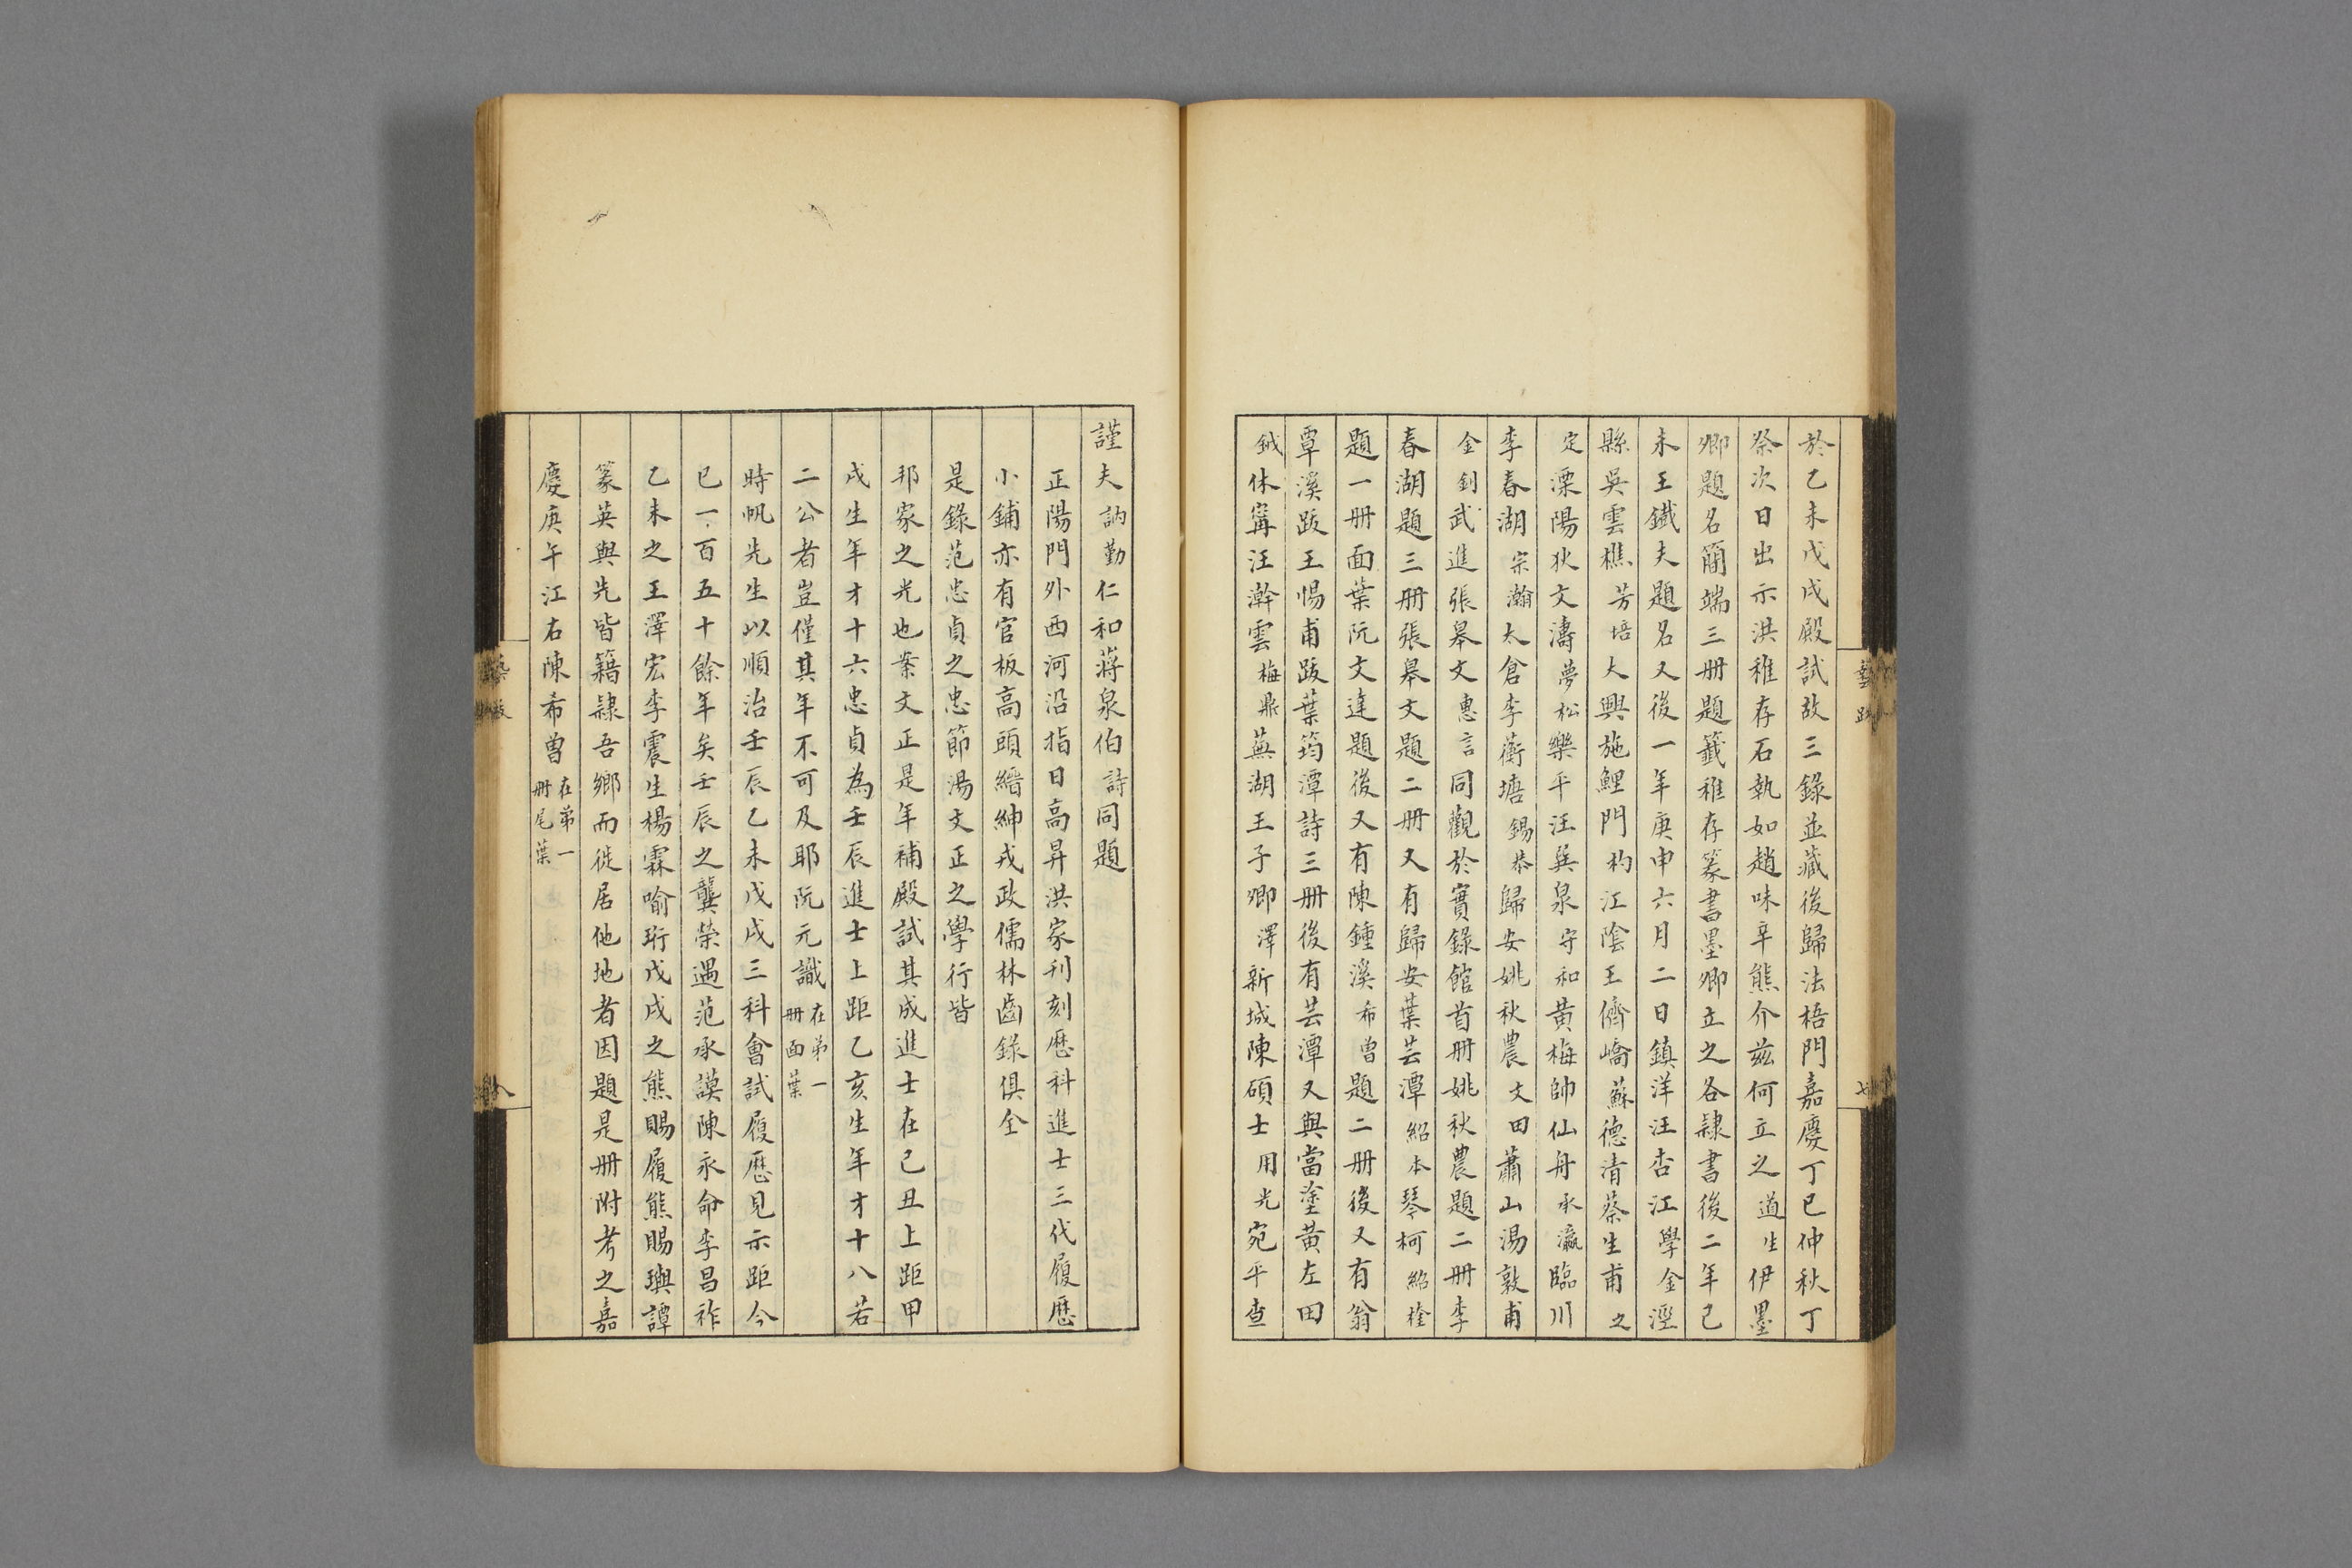 於乙未戊戌殿試故三錄並藏後歸法梧門嘉慶丁巳仲秋丁
祭次日出示洪稚存石執如趙味辛熊介兹何立之道生伊墨
卿題名簡端三册題籤稚存篆書墨卿立之各隷書後二年己
未王鐵夫題名又後一年庚申六月二日鎮洋汪杏江學金涇
縣吳雲樵芳培大興施鯉門杓江陰王儕嶠蘇德清蔡生甫之
定溧陽狄文濤夢松樂平汪巽泉守和黃梅帥仙舟承瀛臨川
李春湖宗瀚太倉李蘅塘錫恭歸安姚秋農文田蕭山湯敦甫
金釗武進張皋文惠言同觀於實錄館首册姚秋農題二册李
春湖題三册張皋文題二册又有歸安葉芸潭紹本琴柯紹楏
題一册面葉阮文達題後又有陳鍾溪希曾題二册後又有翁
覃溪跋王惕甫跋葉筠潭詩三册後有芸潭又與當塗黃左田
鉞休寗汪澣雲梅鼎蕪湖王子卿澤新城陳碩士用光宛平查
藝跋
七
謹夫訥勤仁和蔣泉伯詩同題
正陽門外西河沿指日高昇洪家刊刻歷科進士三代履歷
小鋪亦有官板高頭縉紳戎政儒林齒錄俱全
是錄范忠貞之忠節湯文正之學行皆
邦家之光也案文正是年補殿試其成進士在己丑上距甲
戌生年才十六忠貞為壬辰進士上距乙亥生年才十八若
二公者豈僅其年不可及耶阮元識在弟一册面葉
時帆先生以順治壬辰乙未戊戌三科會試履歷見示距今
已一百五十餘年矣壬辰之龔榮遇范承謨陳永命李昌祚
乙未之王澤宏李震生楊霖喻珩戊戌之熊賜履熊賜璵譚
篆英與先皆籍隷吾鄉而徙居他地者因題是册附考之嘉
慶庚午江右陳希曾在弟一册尾葉
藝跋
八